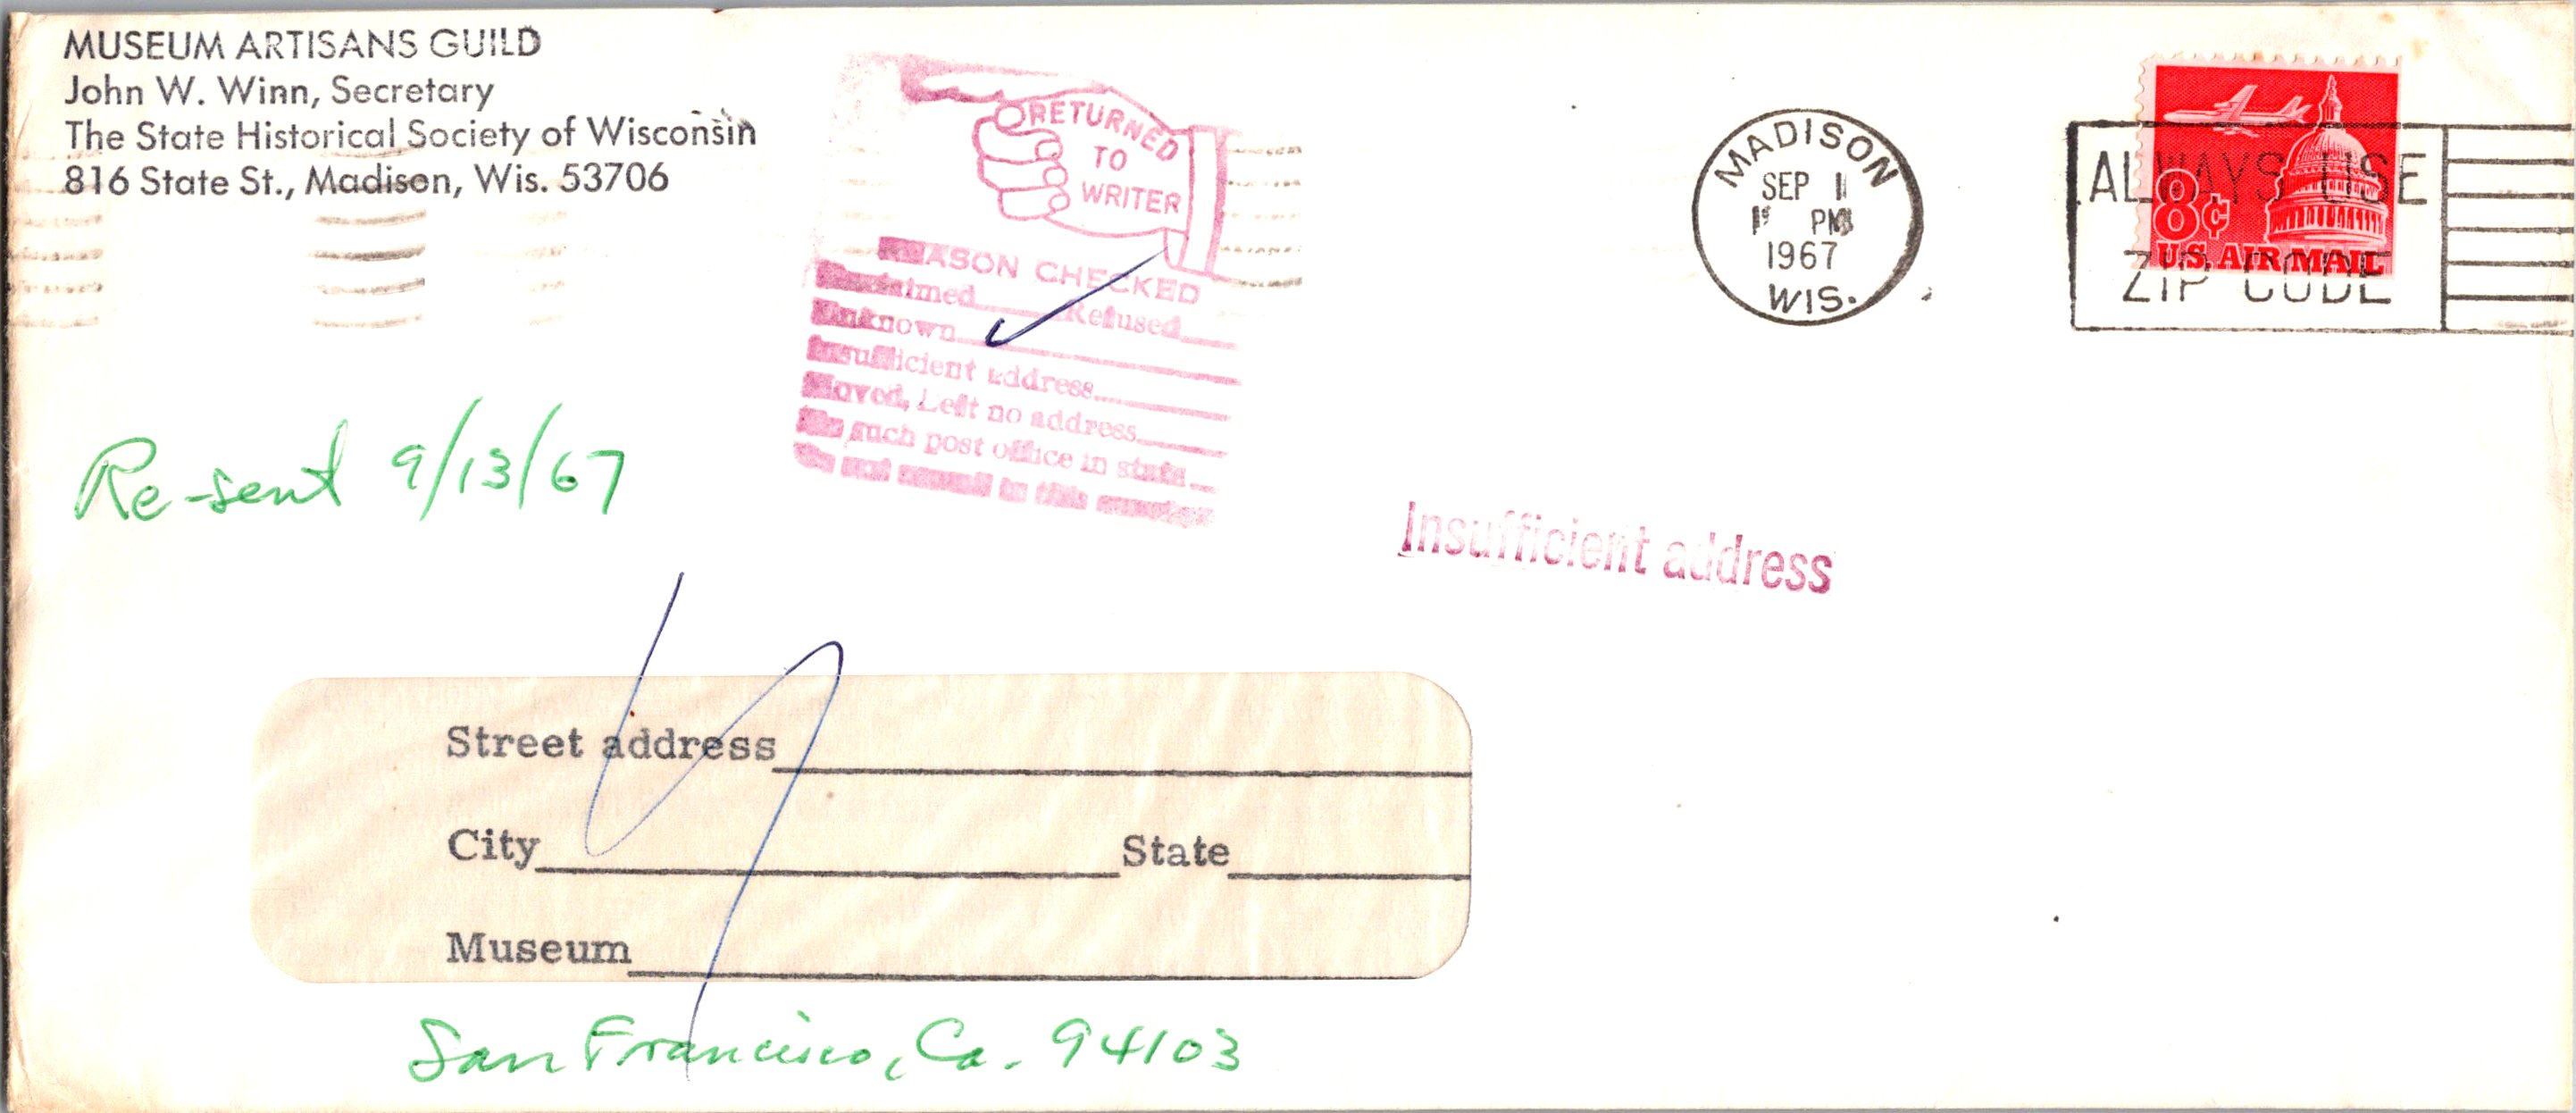 MUSEUM ARTISANS GUILD
John W. Winn, Secretary
The State Historical Society of Wisconsin
816 State St., Madison, Wis. 53706
RETURNED
TO
WRITER
REASON CHECKED
Unclaimed Refused
Unknown
Insufficient address
Moved, Left no address
No such post office in state
Do not remail in this envelope
MADISON
SEP 1
PM
1967
WIS.
ALWAYS USE
ZIP CODE
8¢
U.S. AIR MAIL
Re-sent 9/13/67
Insufficient address
Street address
City State
Museum
San Francisco, Ca. 94103